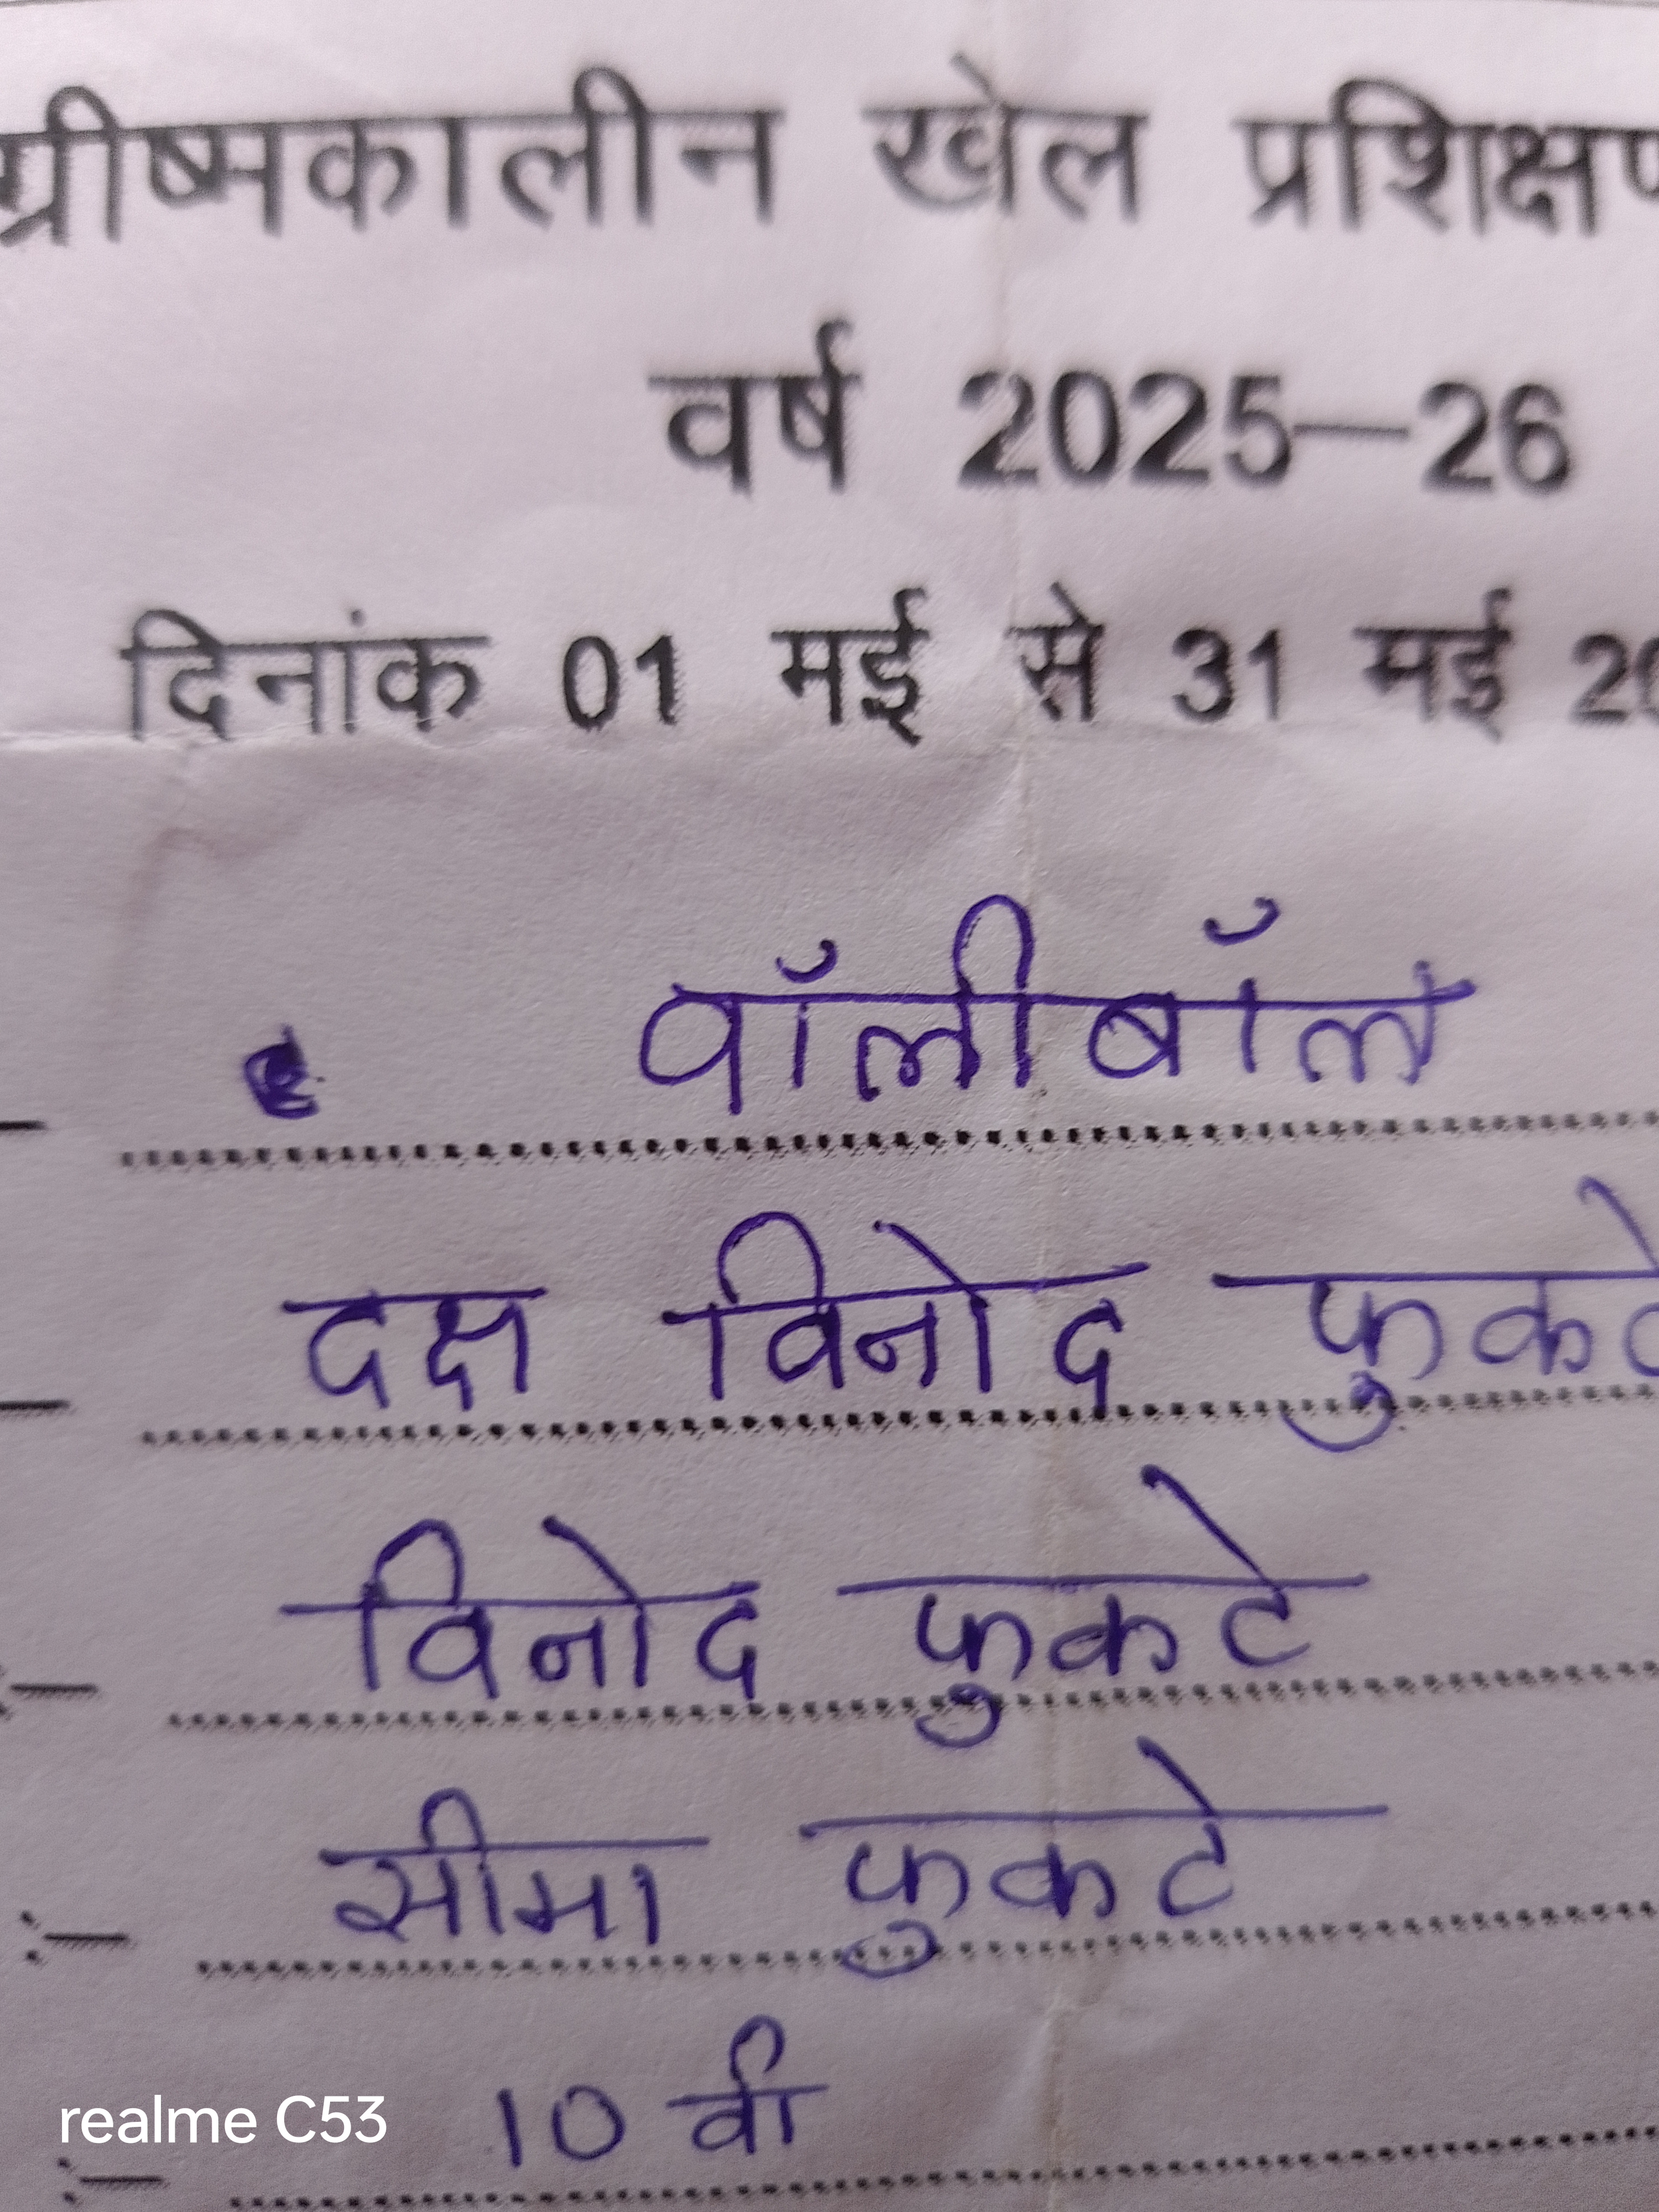 ग्रीष्मकालीन खेल प्रशिक्षण
वर्ष 2025—26
दिनांक 01 मई से 31 मई 20
वॉलीबॉल
दक्ष विनोद फुकटे
विनोद फुकटे
सीमा फुकटे
10 वी
realme C53